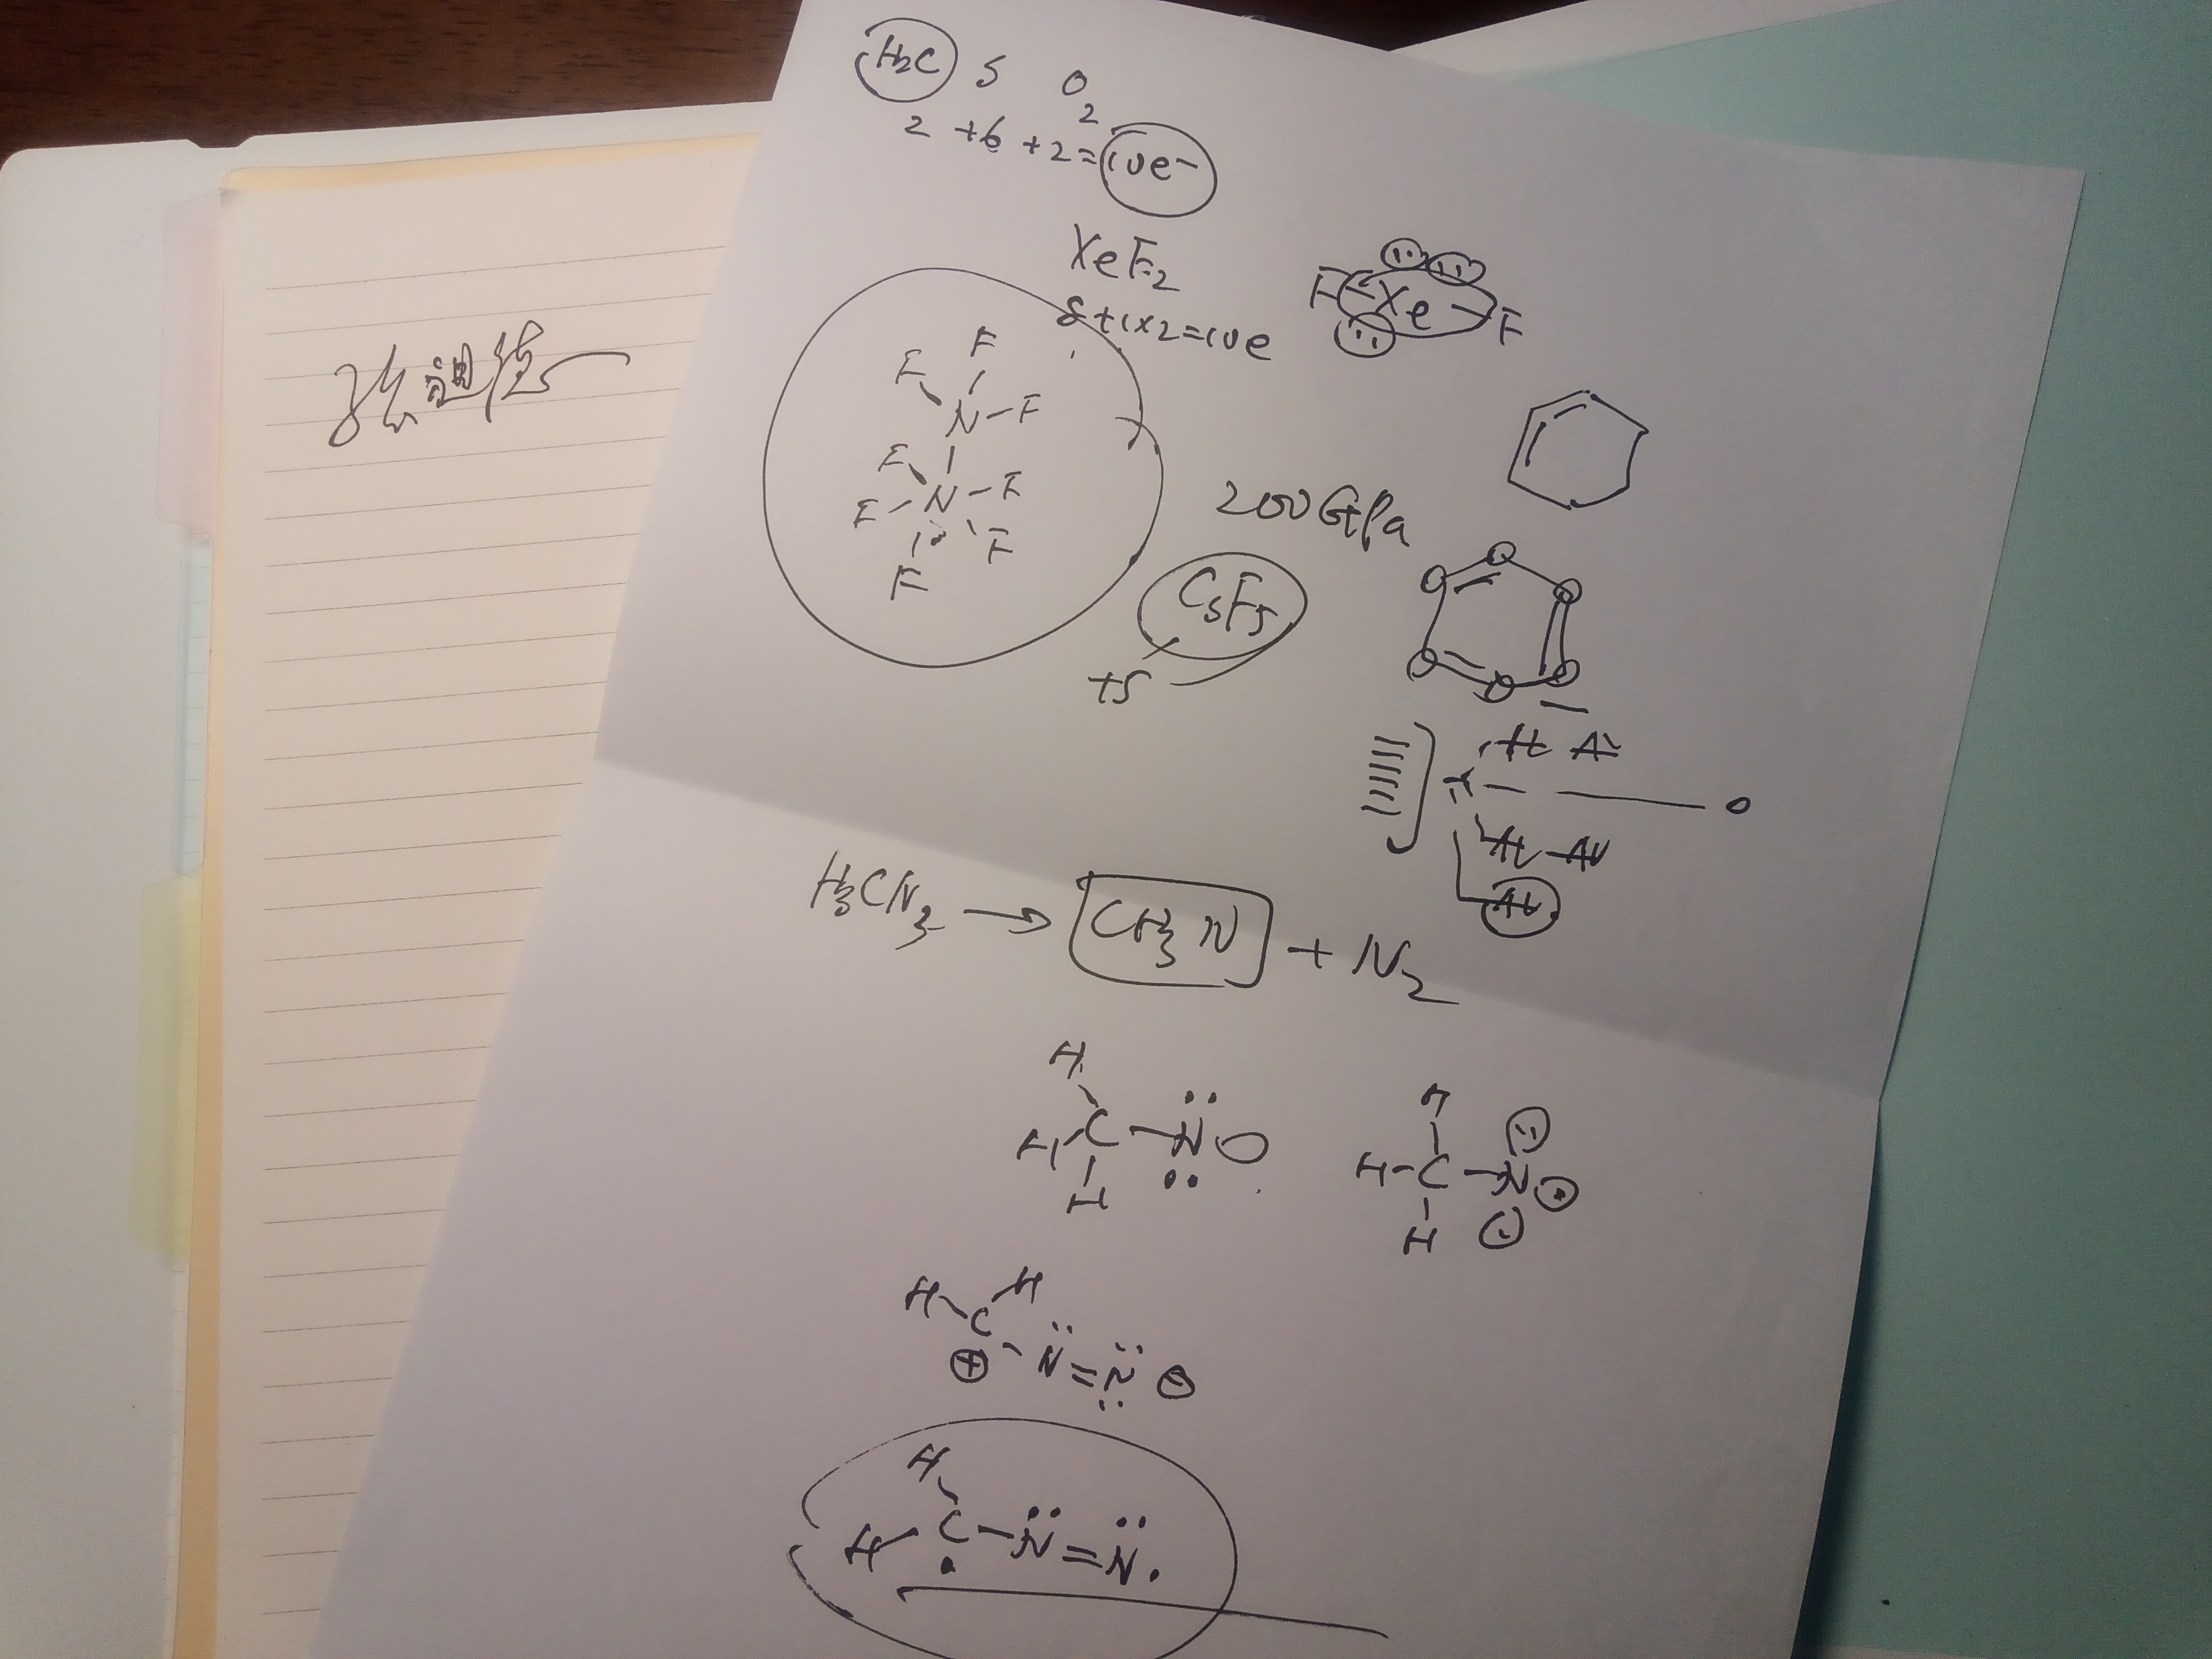 H₂C S O₂
2 +6 +2=10e⁻
XeF₂
8+1×2=10e
F-Xe-F
F
F N-F
F
F-N-F
F
F
200GPa
CsF₅
+5
H₃CN₃ → CH₃N + N₂
H
H-C-N
H
H
H-C-N
H
H H
C
⊕ N=N ⊖
H
H-C-N=N